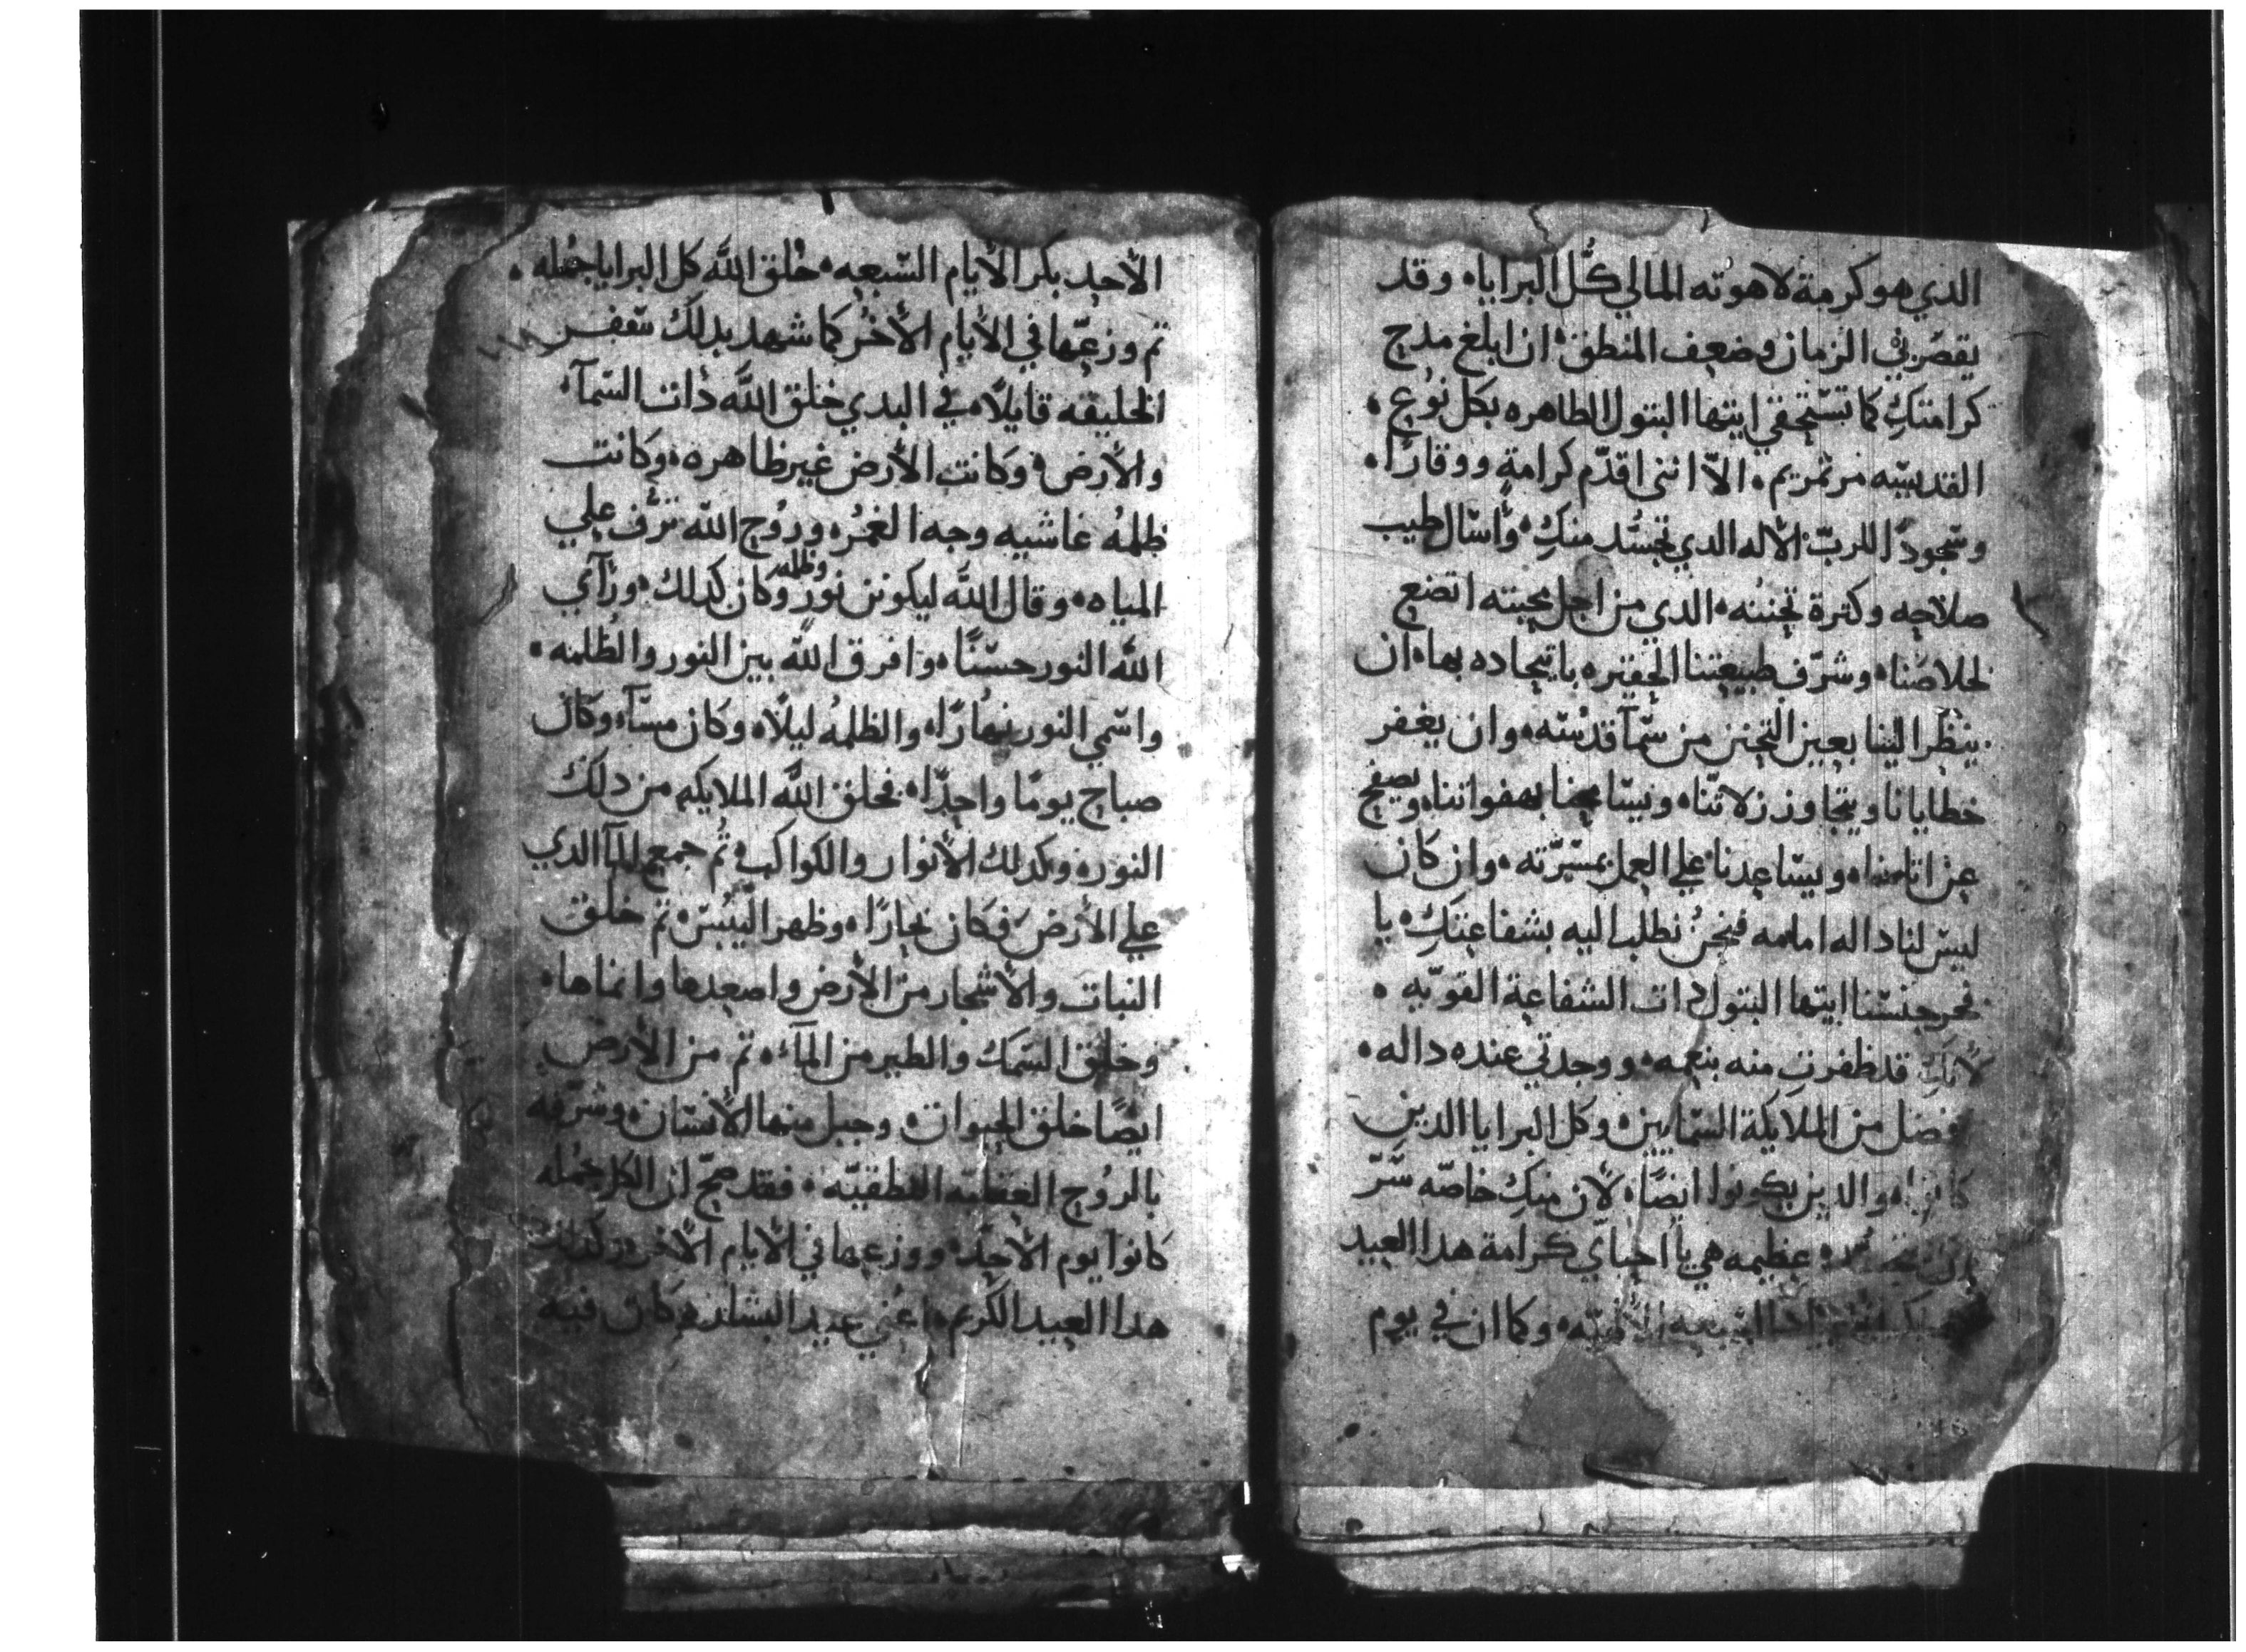 الدي هو كرمة لاهوته المالي كُل البرايا، وقد
يقصر بي الزمان وضعف المنطق، ان ابلغ مدح
كرامتكِ كما تستحقي ايتها البتول الطاهره بكل نوع،
القديسه مرتمريم، الاّ انني اقدّم كرامةٍ ووقارًا،
وسجودًا للربّ الأله الدي تجسّد منكِ، وأسال طيب
صلاحه وكترة تحننه، الدي من اجل محبته اتضع
لخلاصنا، وشرّف طبيعتنا الحقيره باتحاده بها، ان
ينظر الينا بعين التحنن من سمآ قدسه، وان يغفر
خطايانا ويتجاوز زلاتنا، ويسامحنا بهفواتنا، ويصفح
عن اتامنا، ويساعدنا علي العمل بمسرّته، وان كان
ليس لنا داله امامه فنحنُ نطلب اليه بشفاعتكِ، يا
فخر جنسنا ايتها البتول دات الشفاعة القويه،
لأنكِ قد ظفرتِ منه بنعمه، ووجدتي عنده داله،
افضل من الملايكة السمايين، وكل البرايا الدين
كانوا، والدين يكونوا ايضًا، لأن منكِ خاصّه سرّ
عظيمه هي يا احباي كرامة هدا العيد
وكما ان في يوم
الأحد بكر الأيام السبعه، خلق الله كل البرايا جمله،
تم وزعها في الأيام الأخر كما شهد بدلك سفر
الخليقه قايلاً، في البدي خلق الله دات السمآ،
والأرض، وكانت الأرض غير ظاهره، وكانت
ظلمهُ غاشيه وجه الغمر، وروح الله ترف علي
المياه، وقال الله ليكونن نور وظلمه وكان كدلك، ورآي
الله النور حسنًا، وافرق الله بين النور والظلمه،
واسمي النور نهارًا، والظلمهُ ليلاً، وكان مسآ، وكان
صباح يومًا واحدًا، فخلق الله الملايكه من دلك
النور، وكدلك الأنوار والكواكب، تُم جمع المآ الدي
علي الأرض، فكان بحارًا، وظهر اليبس، تم خلق
النبات والأشجار من الأرض واصعدها وانماها،
وخلق السمك والطير من المآء، تم من الأرض
ايضًا خلق الحيوان، وجبل منها الأنسان، وشرّفه
بالروح العقليه النطقيّه، فقد صحّ ان الكل جمله
كانوا يوم الأحد، ووزعها في الأيام الأخر، وكدلك
هدا العيد الكريم، اعني عيد البشاره كان فيه